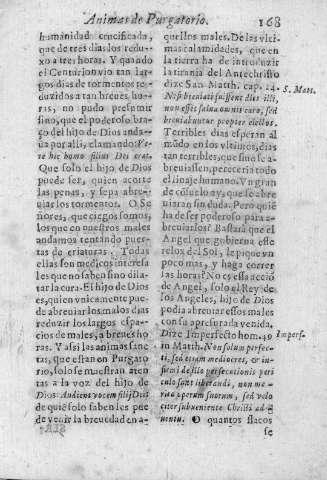 Animas de Purgatorio.
168
humanidad crucificada,
que de tres dias los redu-
xo a tres horas. Y quando
el Centurion vio tan lar-
gos dias de tormentos re-
duzidos a tan breues ho-
ras, no pudo presumir
sino, que el poderoso bra-
ço del hijo de Dios anda-
ua por alli, clamando: Ve-
re hic homo filius Dei erat.
Que solo el hijo de Dios
puede ser, quien acorte
las penas, y sepa abre-
uiar los tormentos. O Se-
ñores, que ciegos somos,
los que en nuestros males
andamos tentando puer-
tas de criaturas. Todas
ellas son medicos interesa
les que no saben sino dila-
tar la cura. El hijo de Dios
es, quien vnicamente pue-
de abreuiar los males dias
reduzir los largos espa-
cios de males, a breues ho
ras. Y assi las animas san-
tas, que estan en Purgato
rio, solo se muestran aten
tas a la voz del hijo de
Dios: Audient vocem filij Dei
de quiē solo saben les pue
de venir la breuedad en a-
quellos males. De las vlti-
mas calamidades, que en
la tierra ha de introduzir
la tirania del Antechristo
dize San Matth. cap. 24.
S. Matt.
Nisi breuiati fuissent dies illi,
non esset salua omnis caro, sed
breuiabuntur propter electos.
Terribles dias esperan al
mūdo en los vltimos, dias
tan terribles, que sino se a-
breuiassen, pereceria todo
el linaje humano. Y n gran
de cōsuelo ay, que se abre
uiaràn sin duda. Pero quiē
ha de ser poderoso para a-
breuiarlos? Bastarà que el
Angel que gobierna esse
relox del Sol, le pique vn
poco mas, y haga correr
las horas? No es essa acciō
de Angel, solo el Rey de
los Angeles, hijo de Dios
podia abreuiar essos males
con su apresurada venida.
Dize Imperfecto hom. 49
Imperf.
in Matth. Non solum perfec-
ti, sed etiam mediocres, & in-
fimi de illo persecutionis peri
culo sunt liberandi, non me-
rito operum suorum, sed velo
citer subueniente Christi ad-
uentu. O quantos flacos
se